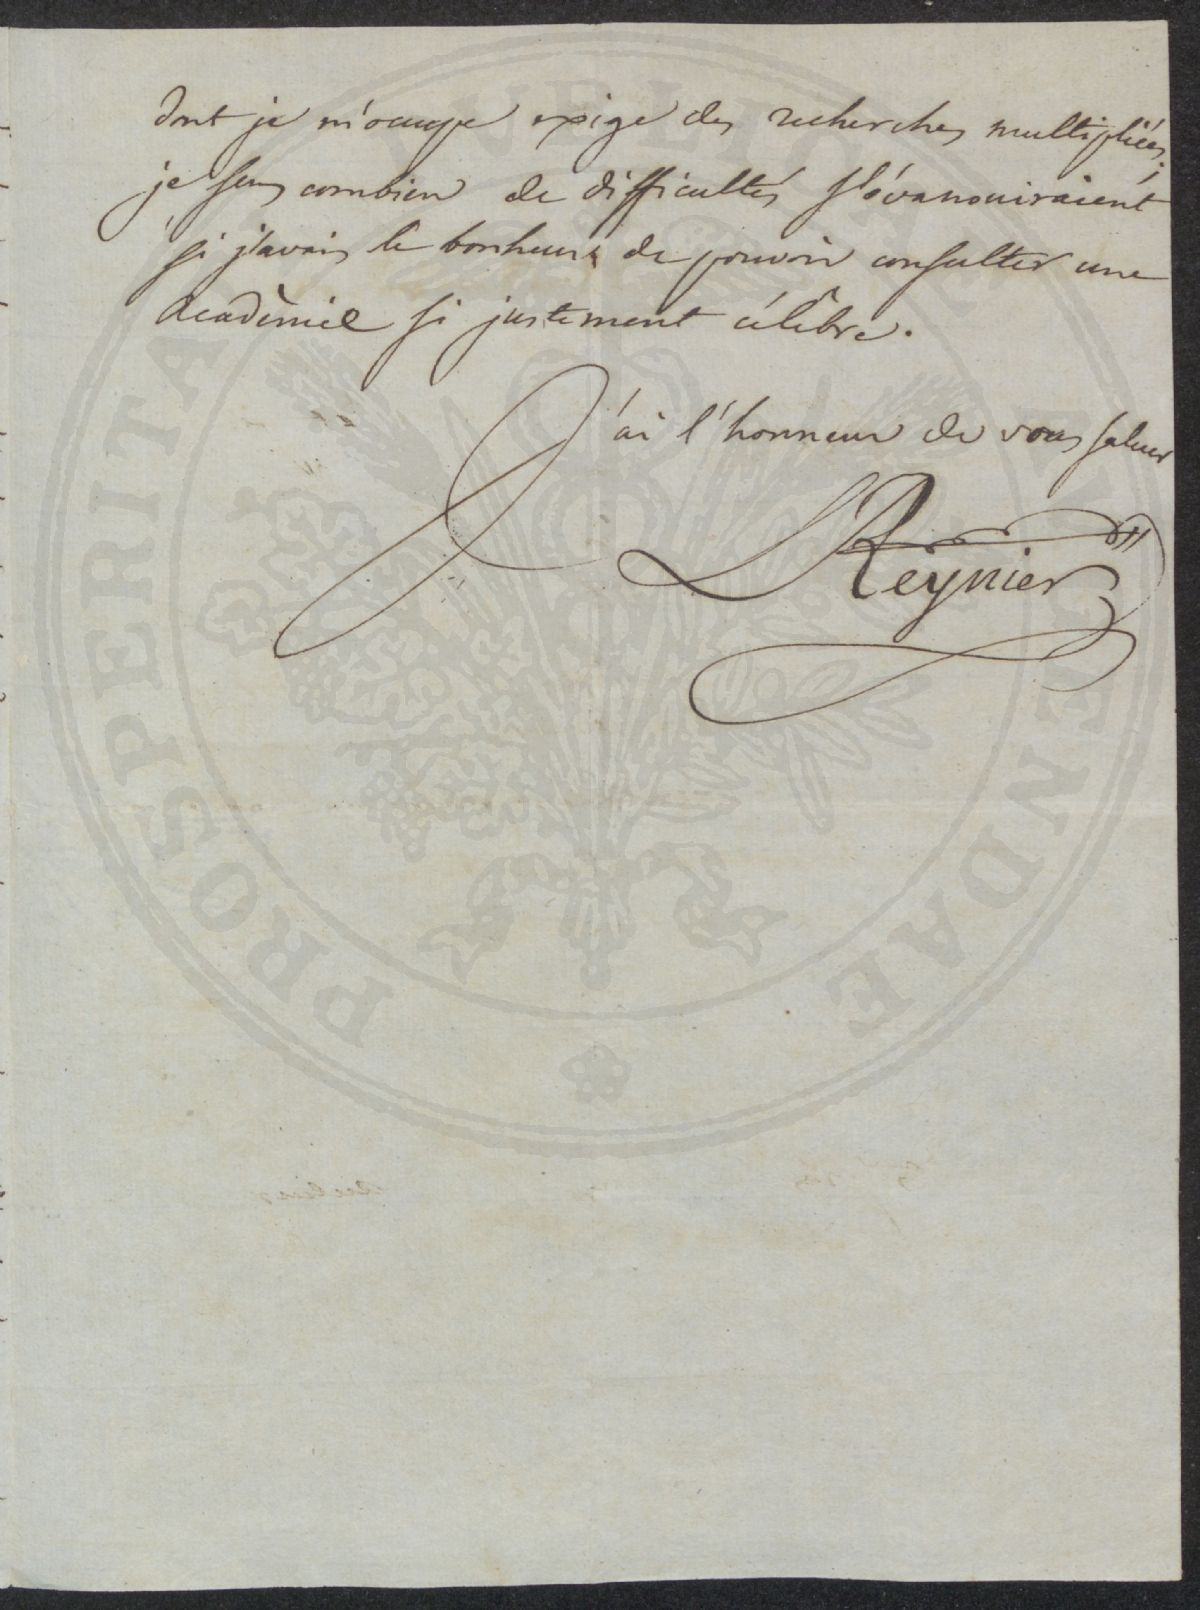 dont je m'occupe exige des recherches multipliées;
je sens combien de difficultés s'évanouiraient
si j'avais le bonheur de pouvoir consulter une
académie si justement célèbre.
J'ai l'honneur de vous saluer
L Reynier
PROSPERITATI
AUGENDAE